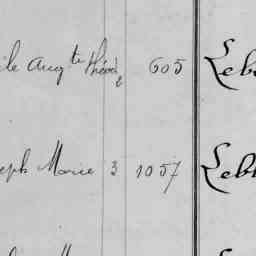 ile Aug te 605 Leb
eph Marie 3 1057 Leb